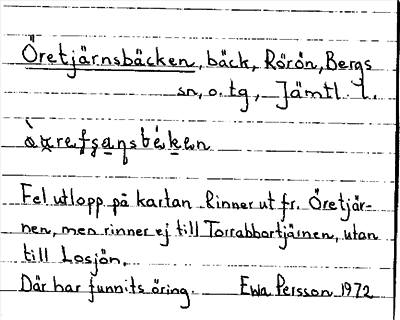 Öretjärnsbäcken, bäck, Rörön, Bergs
sn, o. tg, Jämtl. l.
Fel utlopp på kartan. Rinner ut fr. Öretjär-
nen, men rinner ej till Torrabbortjärnen, utan
till Losjön.
Där har funnits öring. Ewa Persson 1972